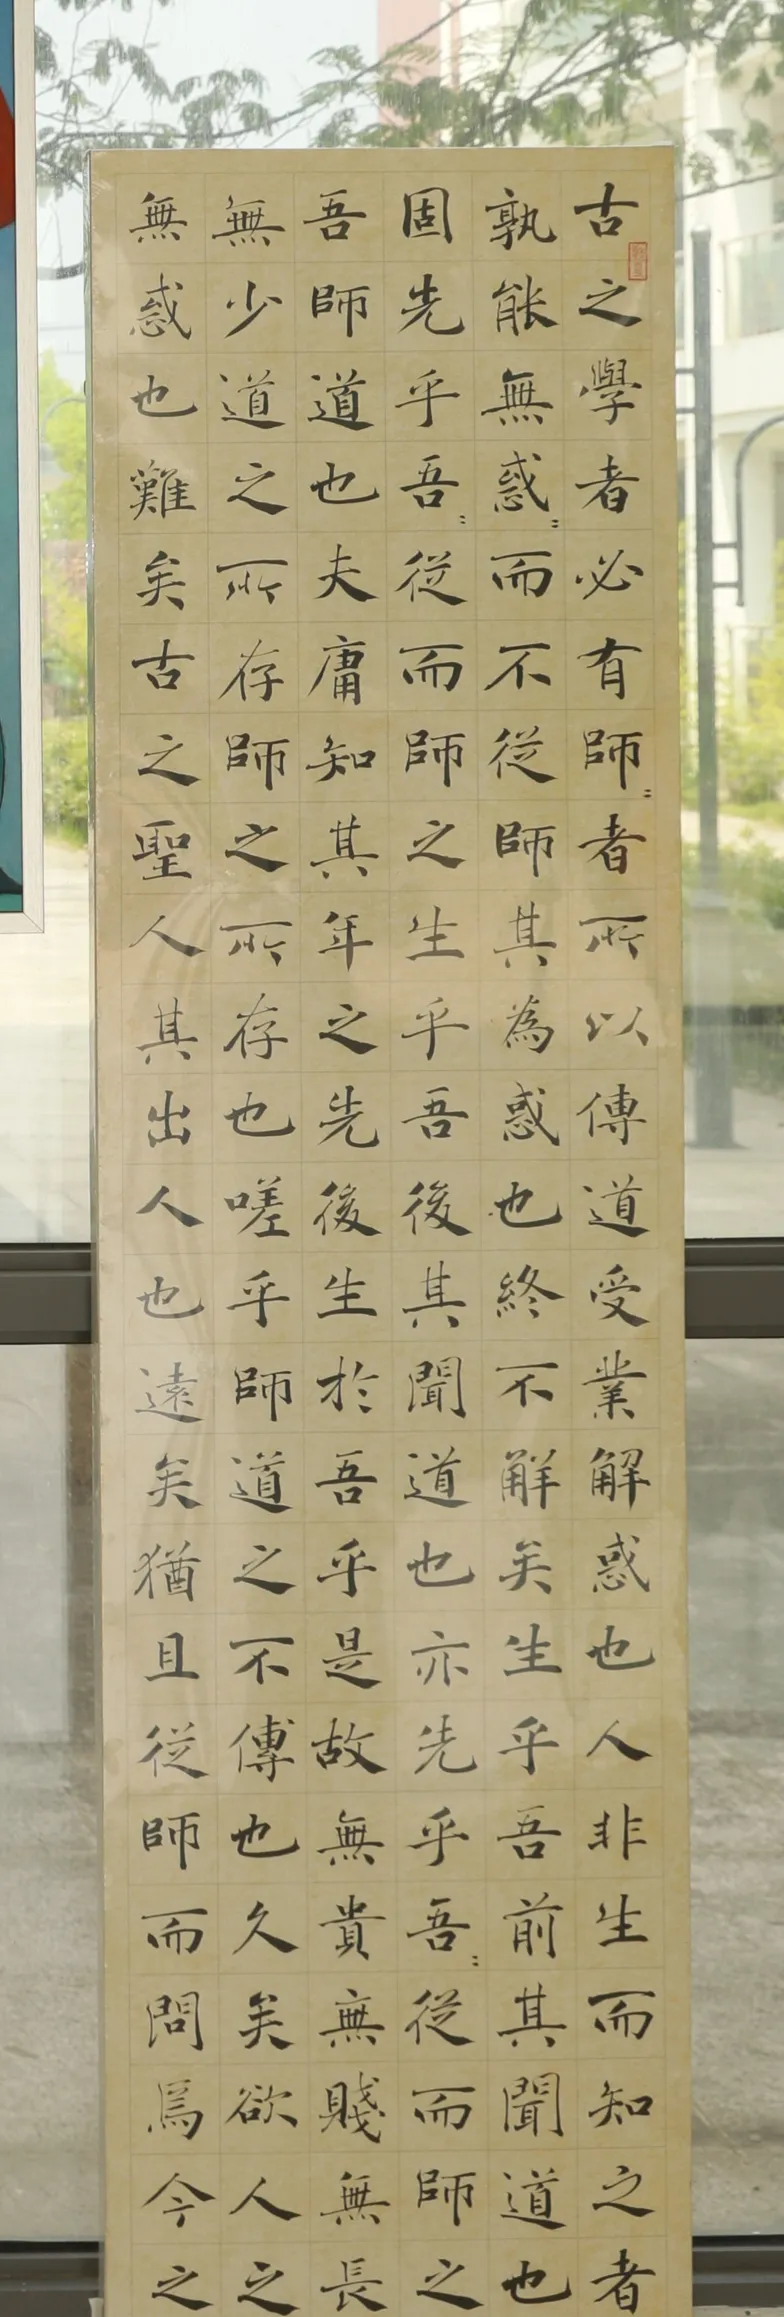 古之學者必有師〻者所以傳道受業解惑也人非生而知之者
孰能無惑〻而不從師其為惑也終不解矣生乎吾前其聞道也
固先乎吾〻從而師之生乎吾後其聞道也亦先乎吾〻從而師之
吾師道也夫庸知其年之先後生於吾乎是故無貴無賤無長
無少道之所存師之所存也嗟乎師道之不傳也久矣欲人之
無惑也難矣古之聖人其出人也遠矣猶且從師而問焉今之